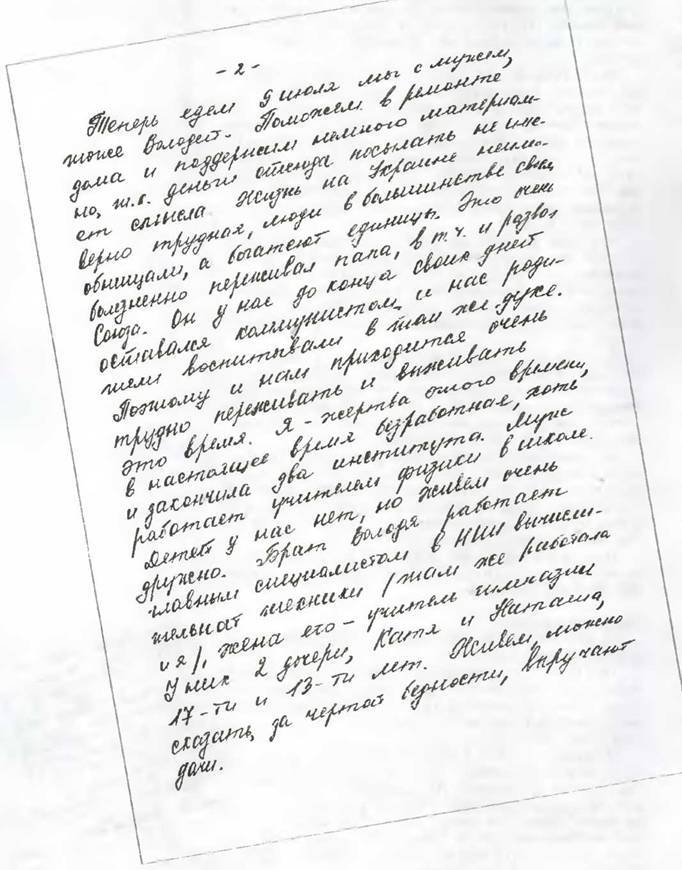 - 2 -
Теперь едем 9 июля мы с мужем,
тоже Володей. Поможем в ремонте
дома и поддержим немного материаль-
но, т.к. деньги отсюда посылать не име-
ет смысла. Жизнь на Украине неимо-
верно трудная, люди в большинстве своём
обнищали, а богатеют единицы. Это очень
болезненно переживал папа, в т.ч. и развал
Союза. Он у нас до конца своих дней
оставался коммунистом и нас роди-
тели воспитывали в том же духе.
Поэтому и нам приходится очень
трудно переживать и выживать
это время. Я - жертва этого времени,
в настоящее время безработная, хоть
и закончила два института. Муж
работает учителем физики в школе.
Детей у нас нет, но живём очень
дружно. Брат Володя работает
главным специалистом в НИИ вычисли-
тельной техники /там же работала
и я/, жена его - учитель гимназии
У них 2 дочери, Катя и Наташа,
17-ти и 13-ти лет. Живём, можно
сказать, за чертой бедности, выручают
дачи.